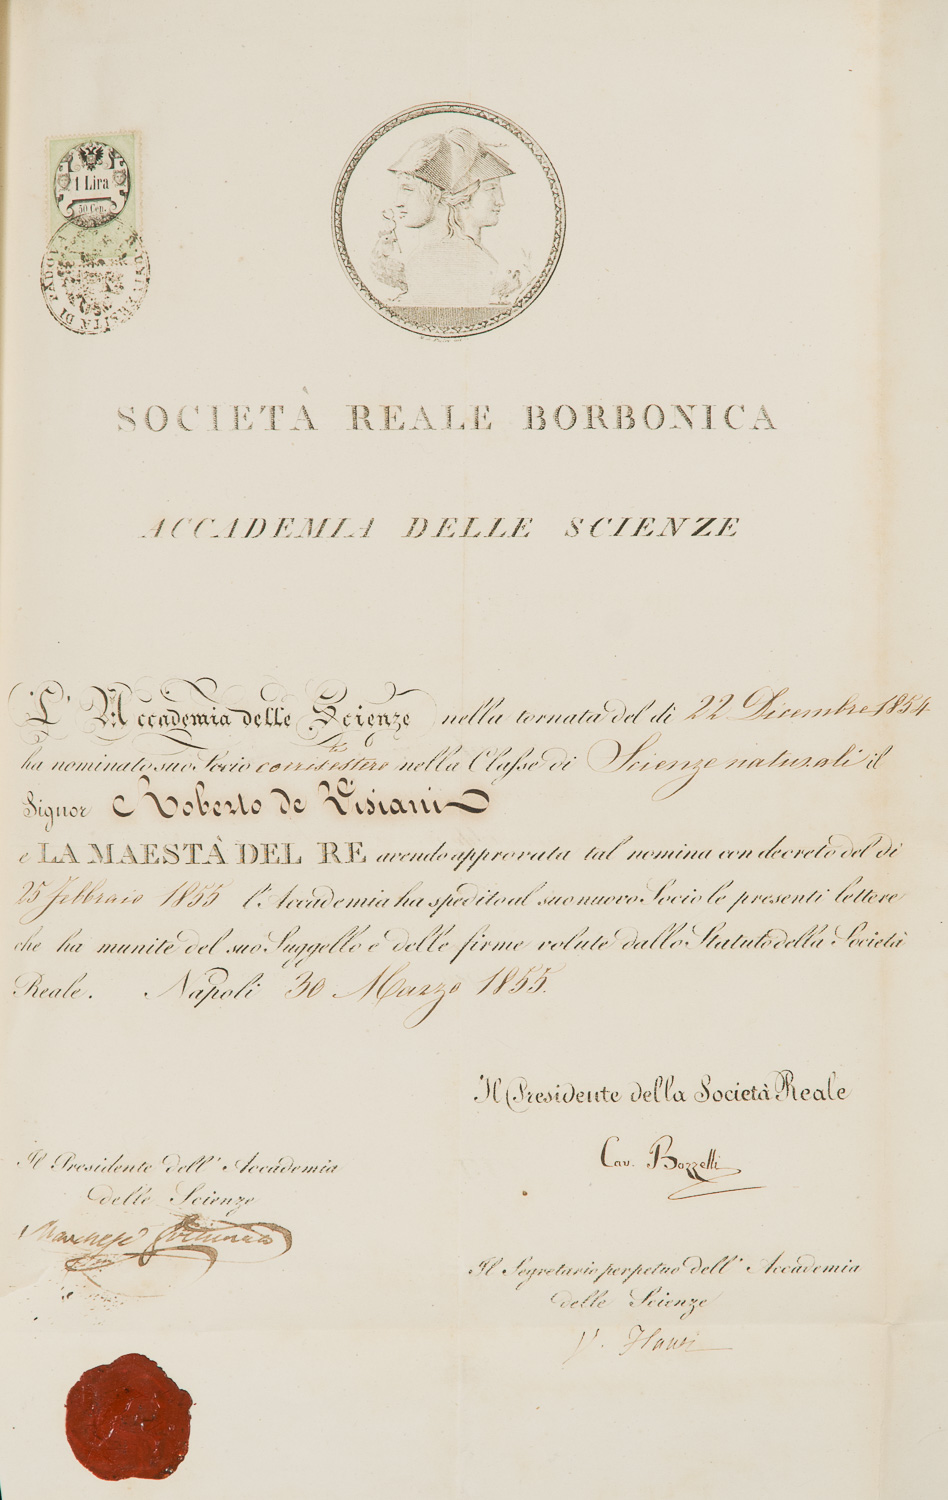 1 Lira
50 Cen.
UNIVERSITÀ DI PADOVA
SOCIETÀ REALE BORBONICA
ACCADEMIA DELLE SCIENZE
L'Accademia delle Scienze nella tornata del dì 22 Dicembre 1854
ha nominato suo Socio nella Classe di Scienze naturali il
Signor Roberto de Visiani
e LA MAESTÀ DEL RE avendo approvata tal nomina con decreto del dì
25 Febbraio 1855 l'Accademia ha spedito al suo nuovo Socio le presenti lettere
che ha munite del suo Suggello e delle firme volute dallo Statuto della Società
Reale. Napoli 30 Marzo 1855.
Il Presidente della Società Reale
Cav. Bozzelli
Il Presidente dell'Accademia
delle Scienze
Marchese Fortunato
Il Segretario perpetuo dell'Accademia
delle Scienze
V. Flauti